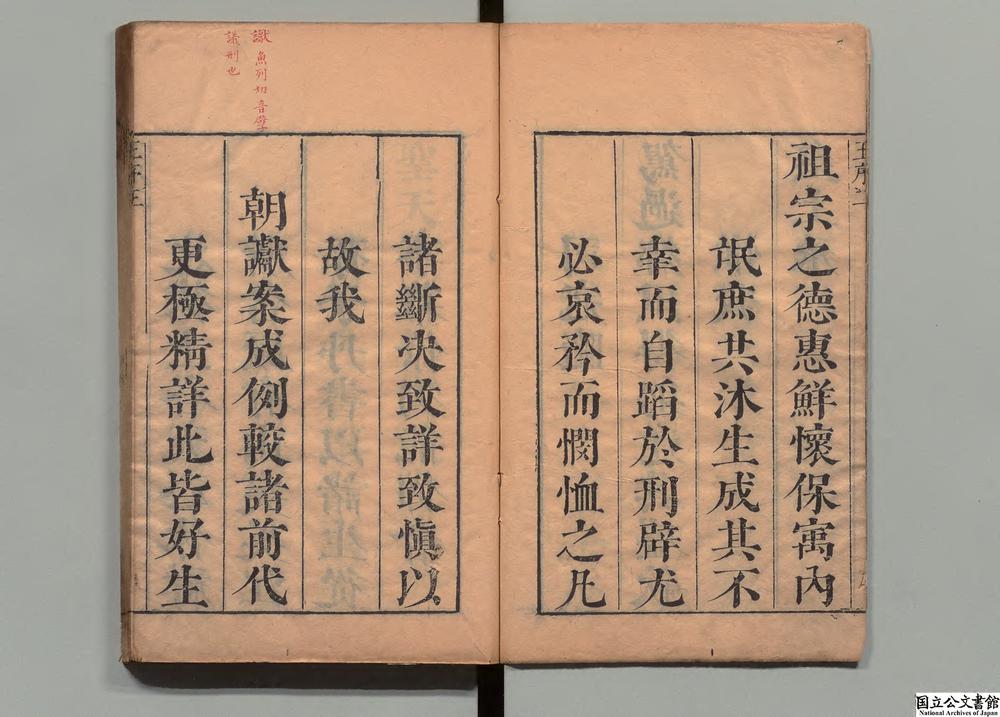 祖宗之德惠鮮懷保寓內
氓庶共沐生成其不
幸而自蹈於刑辟尤
必哀矜而憫恤之凡
諸斷決致詳致慎以
故我
朝讞案成例較諸前代
更極精詳此皆好生
魚列切音孽
議刑也
国立公文書館
National Archives of Japan